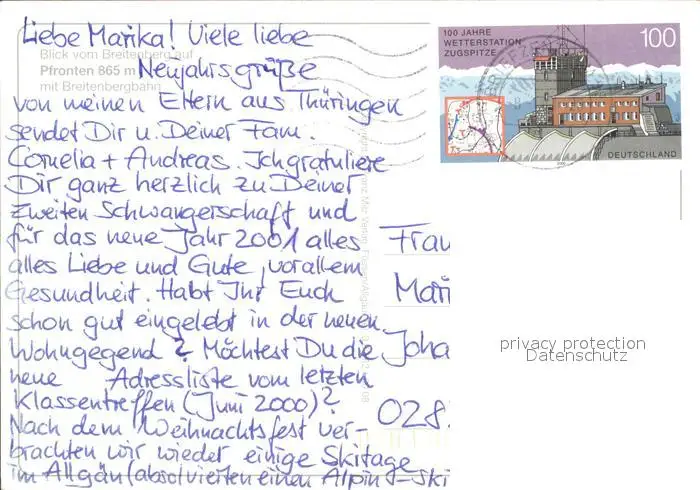 Liebe Marika! Viele liebe
Blick vom Breitenberg auf
Pfronten 865 m
mit Breitenbergbahn
Neujahrsgrüße
von meinen Eltern aus Thüringen
sendet Dir u. Deiner Fam.
Cornelia + Andreas. Ich gratuliere
Dir ganz herzlich zu Deiner
zweiten Schwangerschaft und
für das neue Jahr 2001 alles
alles Liebe und Gute, vorallem
Gesundheit. Habt Ihr Euch
schon gut eingelebt in der neuen
Wohngegend? Möchtest Du die
neue Adressliste vom letzten
Klassentreffen (Juni 2000)?
Nach dem Weihnachtsfest ver-
brachten wir wieder einige Skitage
im Allgäu (absolvierten einen Alpin-Ski
100 JAHRE
WETTERSTATION
ZUGSPITZE
100
DEUTSCHLAND
Frau
Mari
Joha
028
privacy protection
Datenschutz